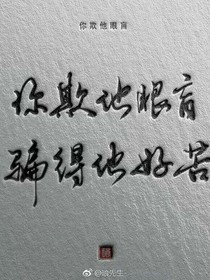 你欺他眼盲
你欺他眼盲
骗得他好苦